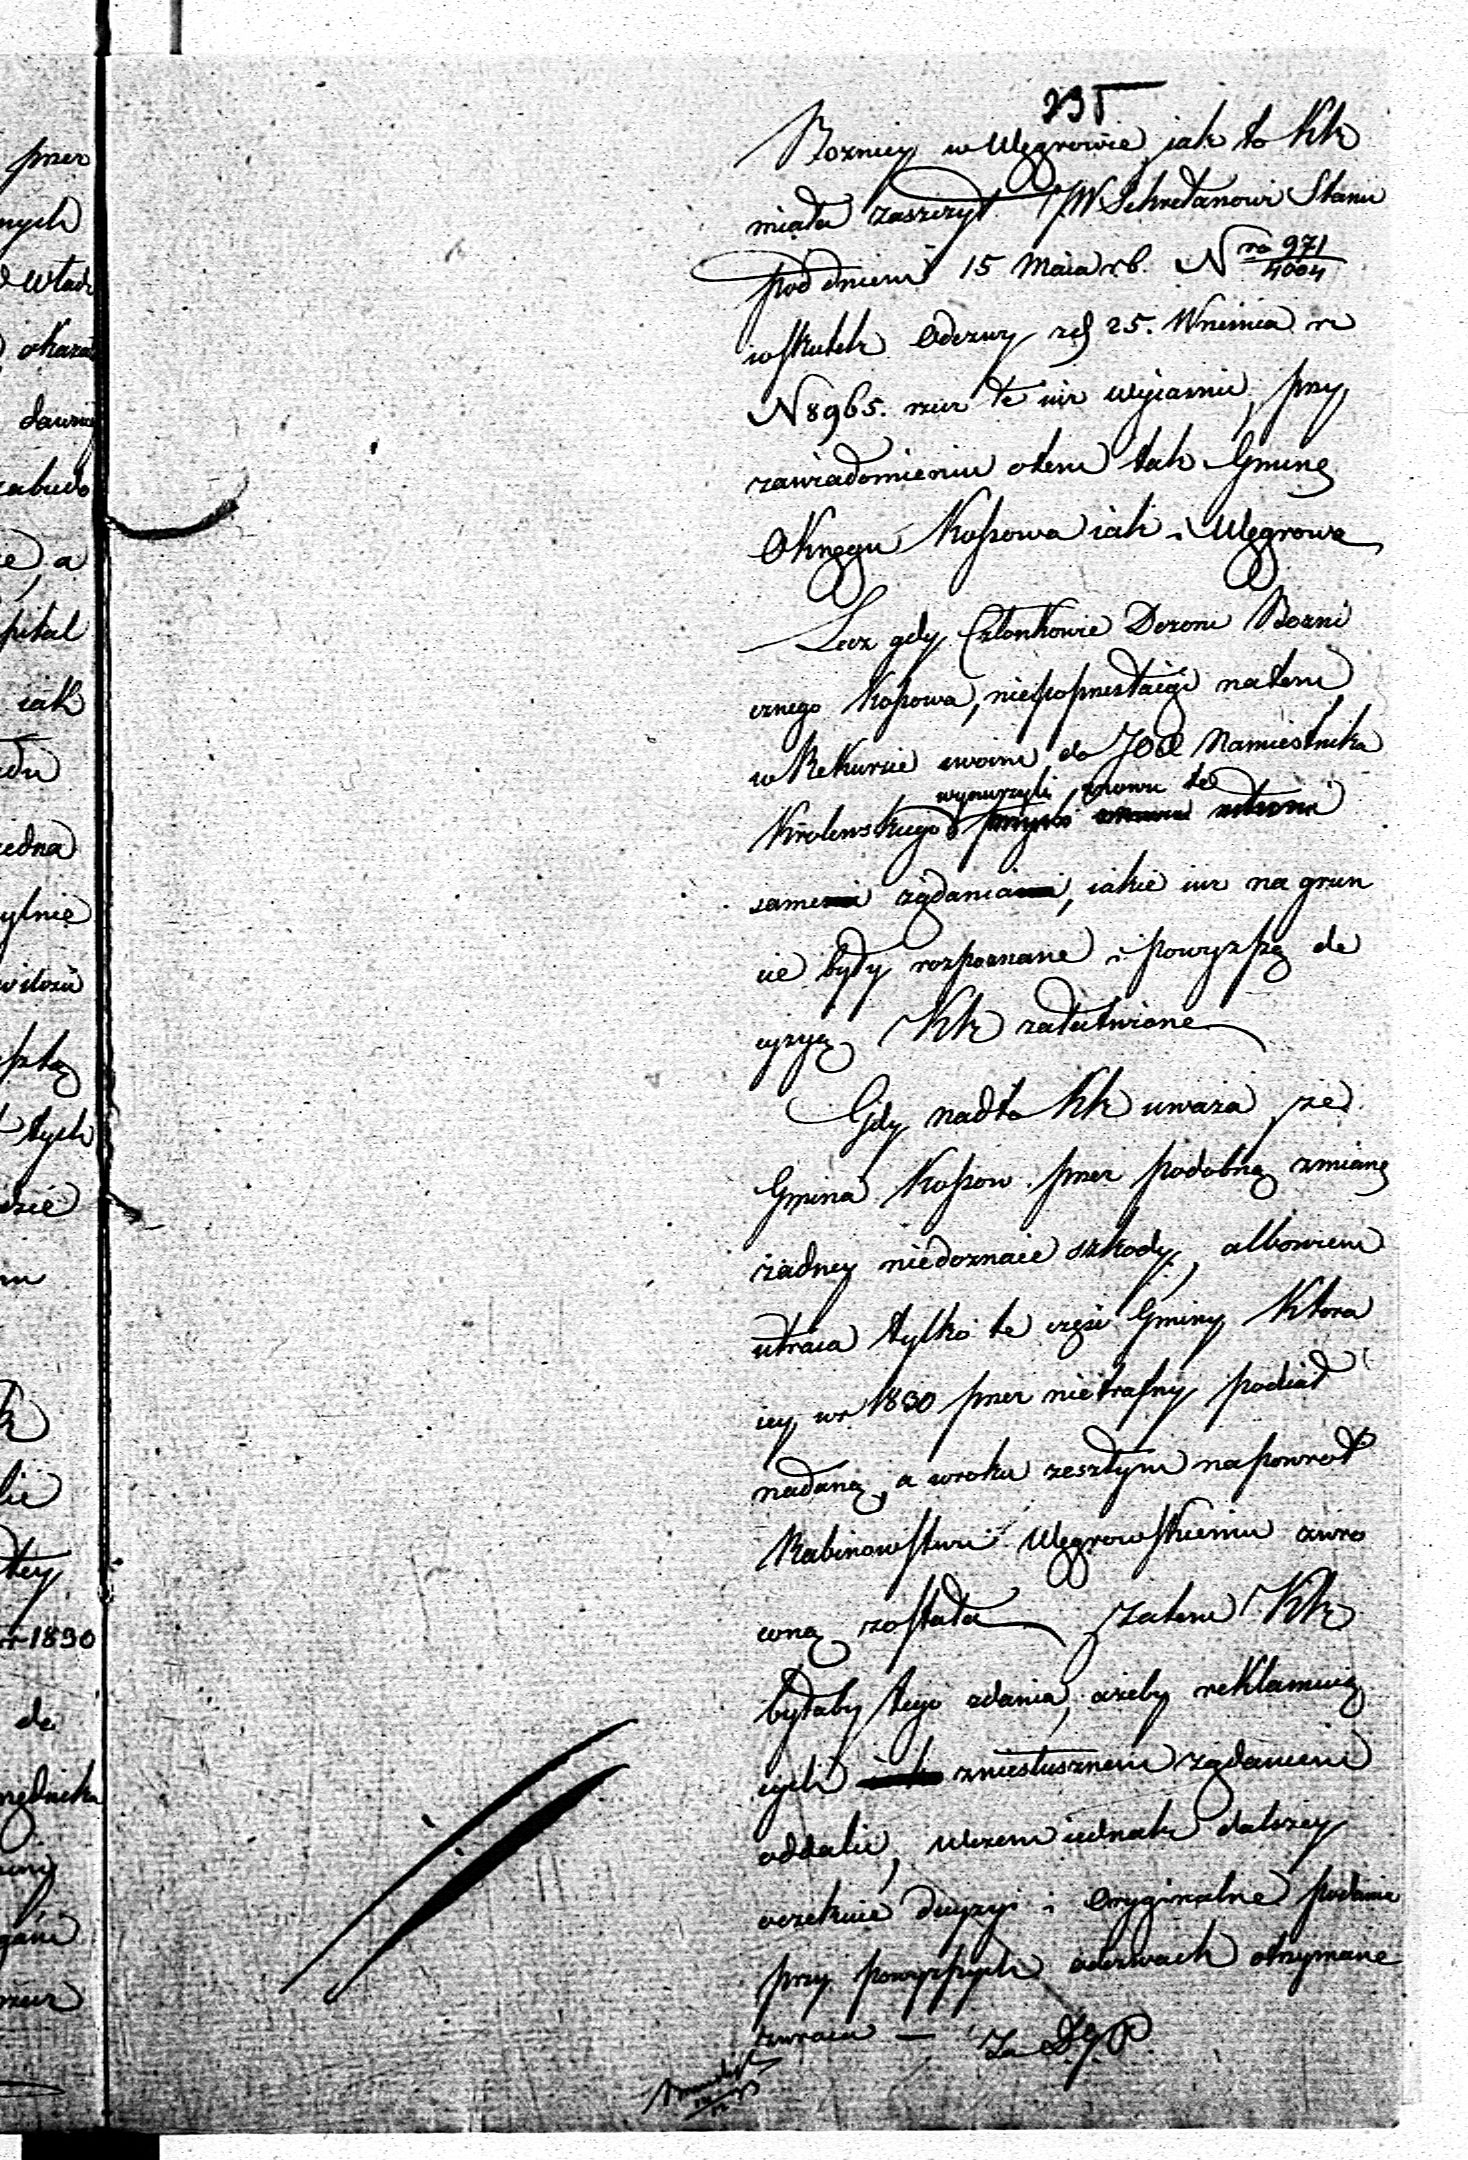 235
Boznicy w Węgrowie, jak to KR
miała zaszczyt JW Sekretarzowi Stanu
pod dniem 15 Maia rb. N ro 971/4004
wskutek Odezwy z d 25. Września r z
N 8965. rzecz tę iuż wyjaśnić, przy
zawiadomieniu otem tak Gminę
Okręgu Kossowa iak i Węgrowa
Lecz gdy Członkowie Dozoru Bożni
cznego Kossowa, niepoprzestaiąc natem,
w Rekursie swoim do JO Namiestnika
wynurzyli znowu te
Krolewskiego
same żądania, iakie iuż na grun
cie były rozpoznane i powyższą de
cyzyą KR załatwione
Gdy nadto KR uważa że
Gmina Kossow przez podobną zmianę
żadney niedoznaie szkody, albowiem
utraca tylko tę część Gminy Ktora
iey w r 1830 przez nietrafny podział
nadaną, a wroku zeszłym napowrot
Rabinowstwu Węgrowskiemu zwro
coną została zatem KR
byłaby tego zdania, ażeby reklamuią
cych z niesłusznem żądaniem
oddalić, wczem iednak dalszey
oczekuie decyzyi i oryginalne podanie
przy powyższych odezwach otrzymane
zwraca — Za D. J. P.
przez
nych
Wład
okaza
dawne
zabudo
ie, a
pital
iak
edna
ylnie
tych
dzie
tey
r 1830
de